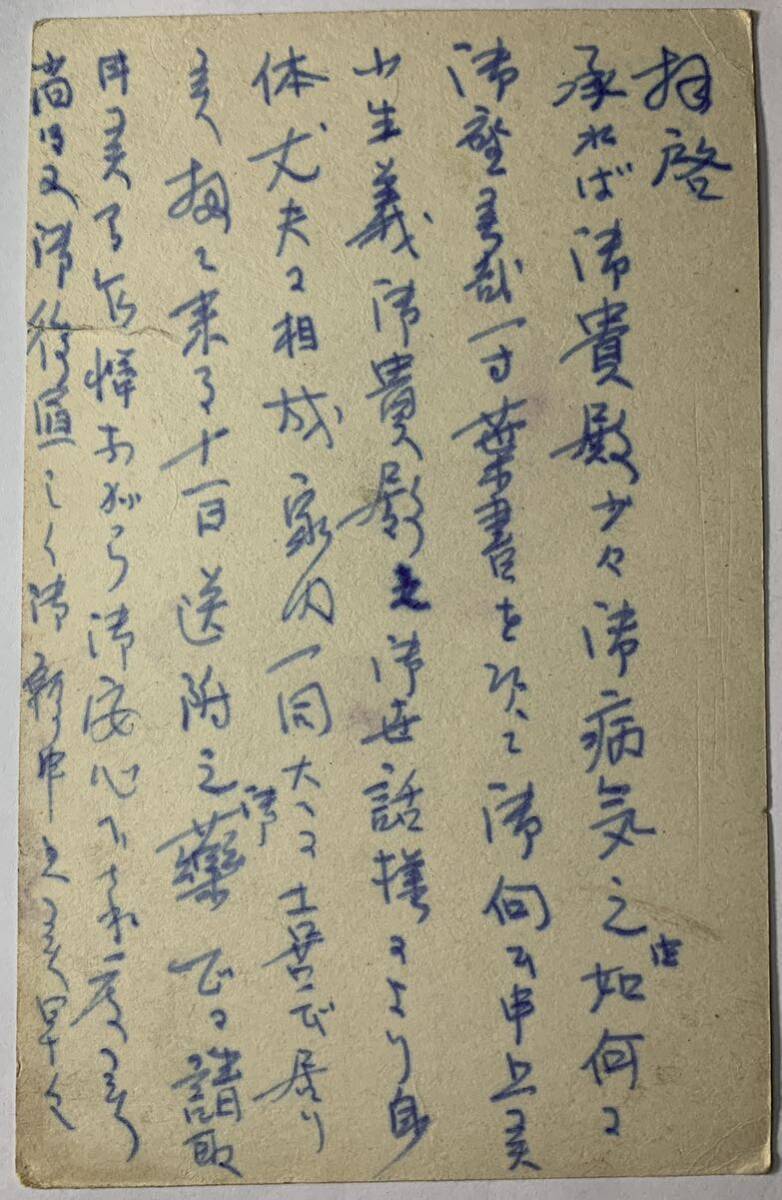 拝啓
承れば御貴殿少々御病気之由如何に
御座候哉一寸葉書を以て御伺い申上候
小生義御貴殿之御世話様により身
体丈夫に相成家内一同大いに喜んで居り
候扨て来る十一日送附之御薬でに請取
申候了乍憚ながら御安心下され度候
尚又御後宜しく御頼申上候早々